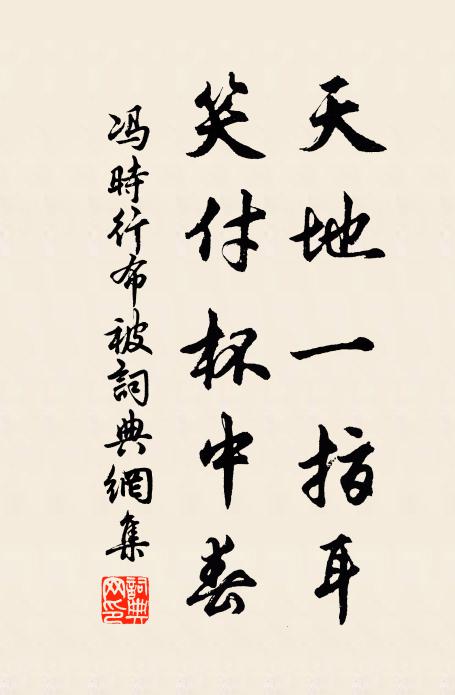 天地一指耳
笑付杯中春
冯時行布被詞典網集
詞典网印